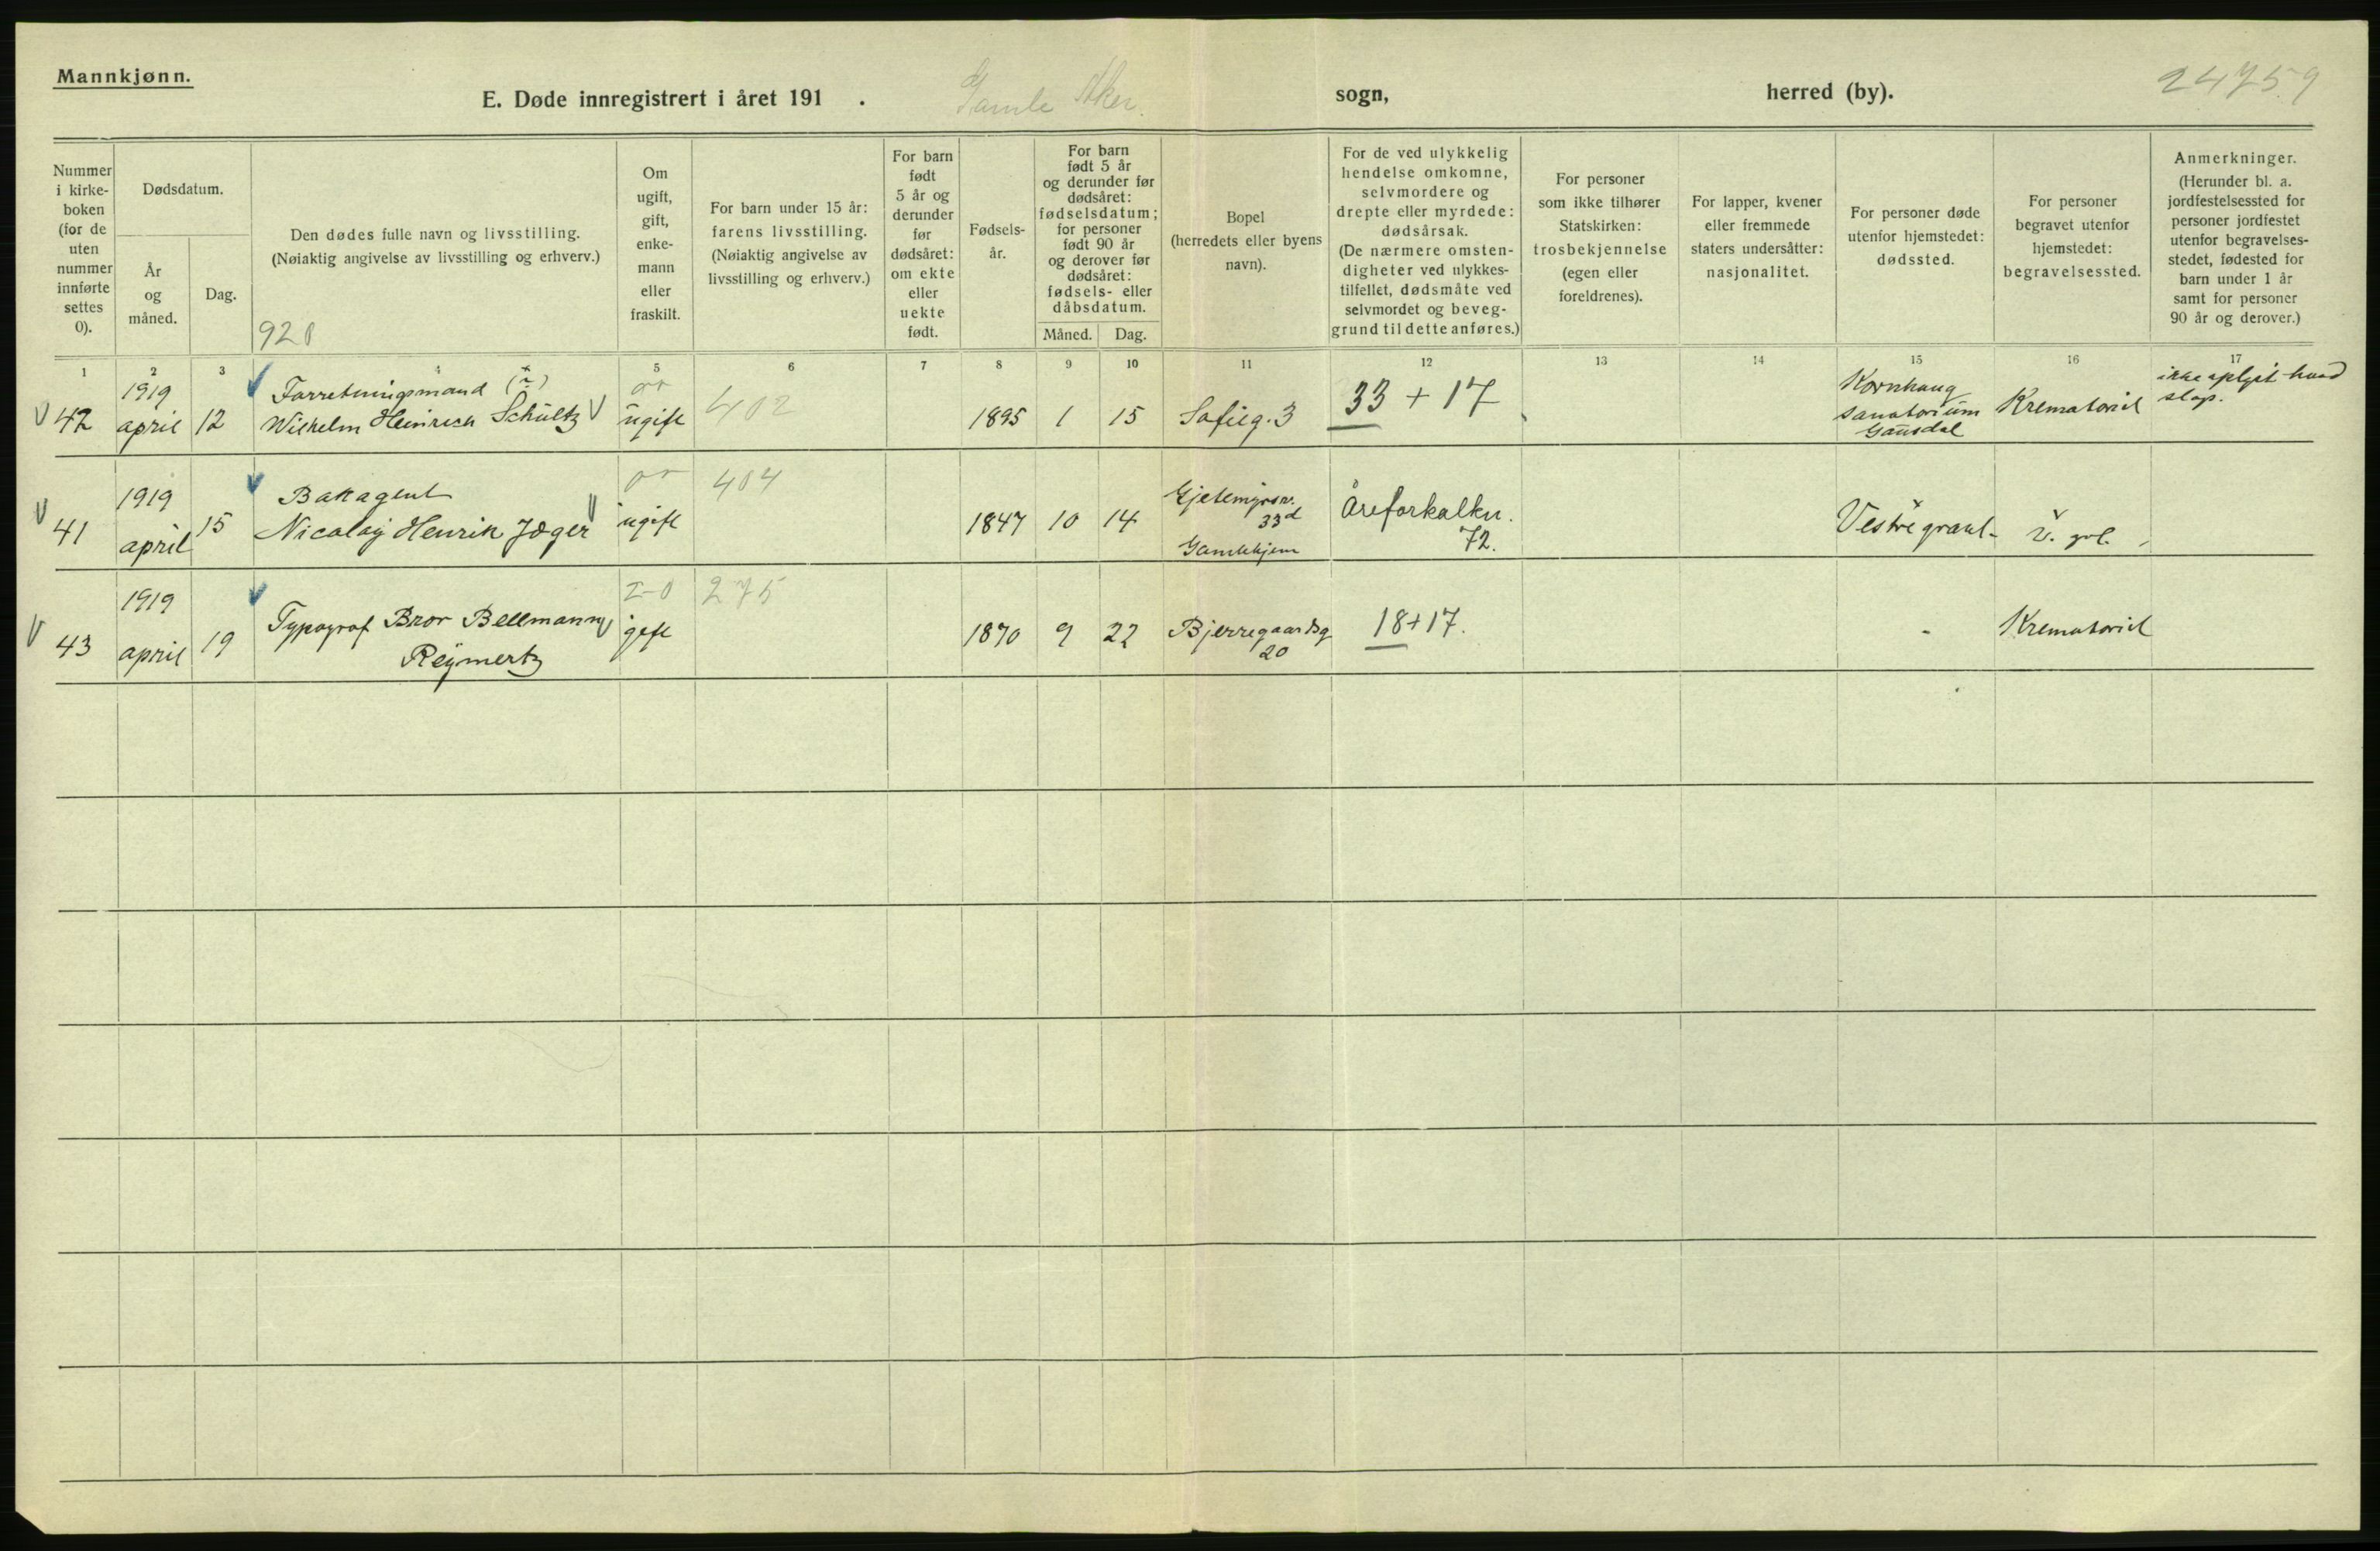 Mannkjønn.
E. Døde innregistrert i året 191 . Gamle Aker. sogn, herred (by). 24759
Nummer i kirke- boken (for de uten nummer innførte settes 0).
Dødsdatum.
År og måned.
Dag.
Den dødes fulle navn og livsstilling.
(Nøiaktig angivelse av livsstilling og erhverv.)
920
Om ugift, gift, enke- mann eller fraskilt.
For barn under 15 år: farens livsstilling. (Nøiaktig angivelse av livsstilling og erhverv.)
For barn født 5 år og derunder før dødsåret: om ekte eller uekte født.
Fødsels- år.
For barn født 5 år og derunder før dødsåret: fødselsdatum; for personer født 90 år og derover før dødsåret: fødsels- eller dåbsdatum.
Måned. Dag.
Bopel (herredets eller byens navn).
For de ved ulykkelig hendelse omkomne, selvmordere og drepte eller myrdede: dødsårsak. (De nærmere omsten- digheter ved ulykkes- tilfellet, dødsmåte ved selvmordet og beveg- grund til dette anføres.)
For personer som ikke tilhører Statskirken: trosbekjennelse (egen eller foreldrenes).
For lapper, kvener eller fremmede staters undersåtter: nasjonalitet.
For personer døde utenfor hjemstedet: dødssted.
For personer begravet utenfor hjemstedet: begravelsessted.
Anmerkninger. (Herunder bl. a. jordfestelsessted for personer jordfestet utenfor begravelses- stedet, fødested for barn under 1 år samt for personer 90 år og derover.)
1 2 3 4 5 6 7 8 9 10 11 12 13 14 15 16 17
42 1919 april 12 Forretningsmand (?) Wilhelm Heinrich Schültz ugift 402 1895 1 15 Sofieg. 3 33 + 17 Kornhaug sanatorium Gausdal Krematoriet ikke oplyst hvad slags.
41 1919 april 15 Nicolay Henrik Jæger ugift 404 1847 10 14 Gjetemyrsv. 33d Gamlehjem Åreforkalkn. 72. Vestre gravl. V. gvl.
43 1919 april 19 Typograf Bror Bellmann Reymertz gift 275 1870 9 22 Bjerregaardsg 20 18+17. - Krematoriet